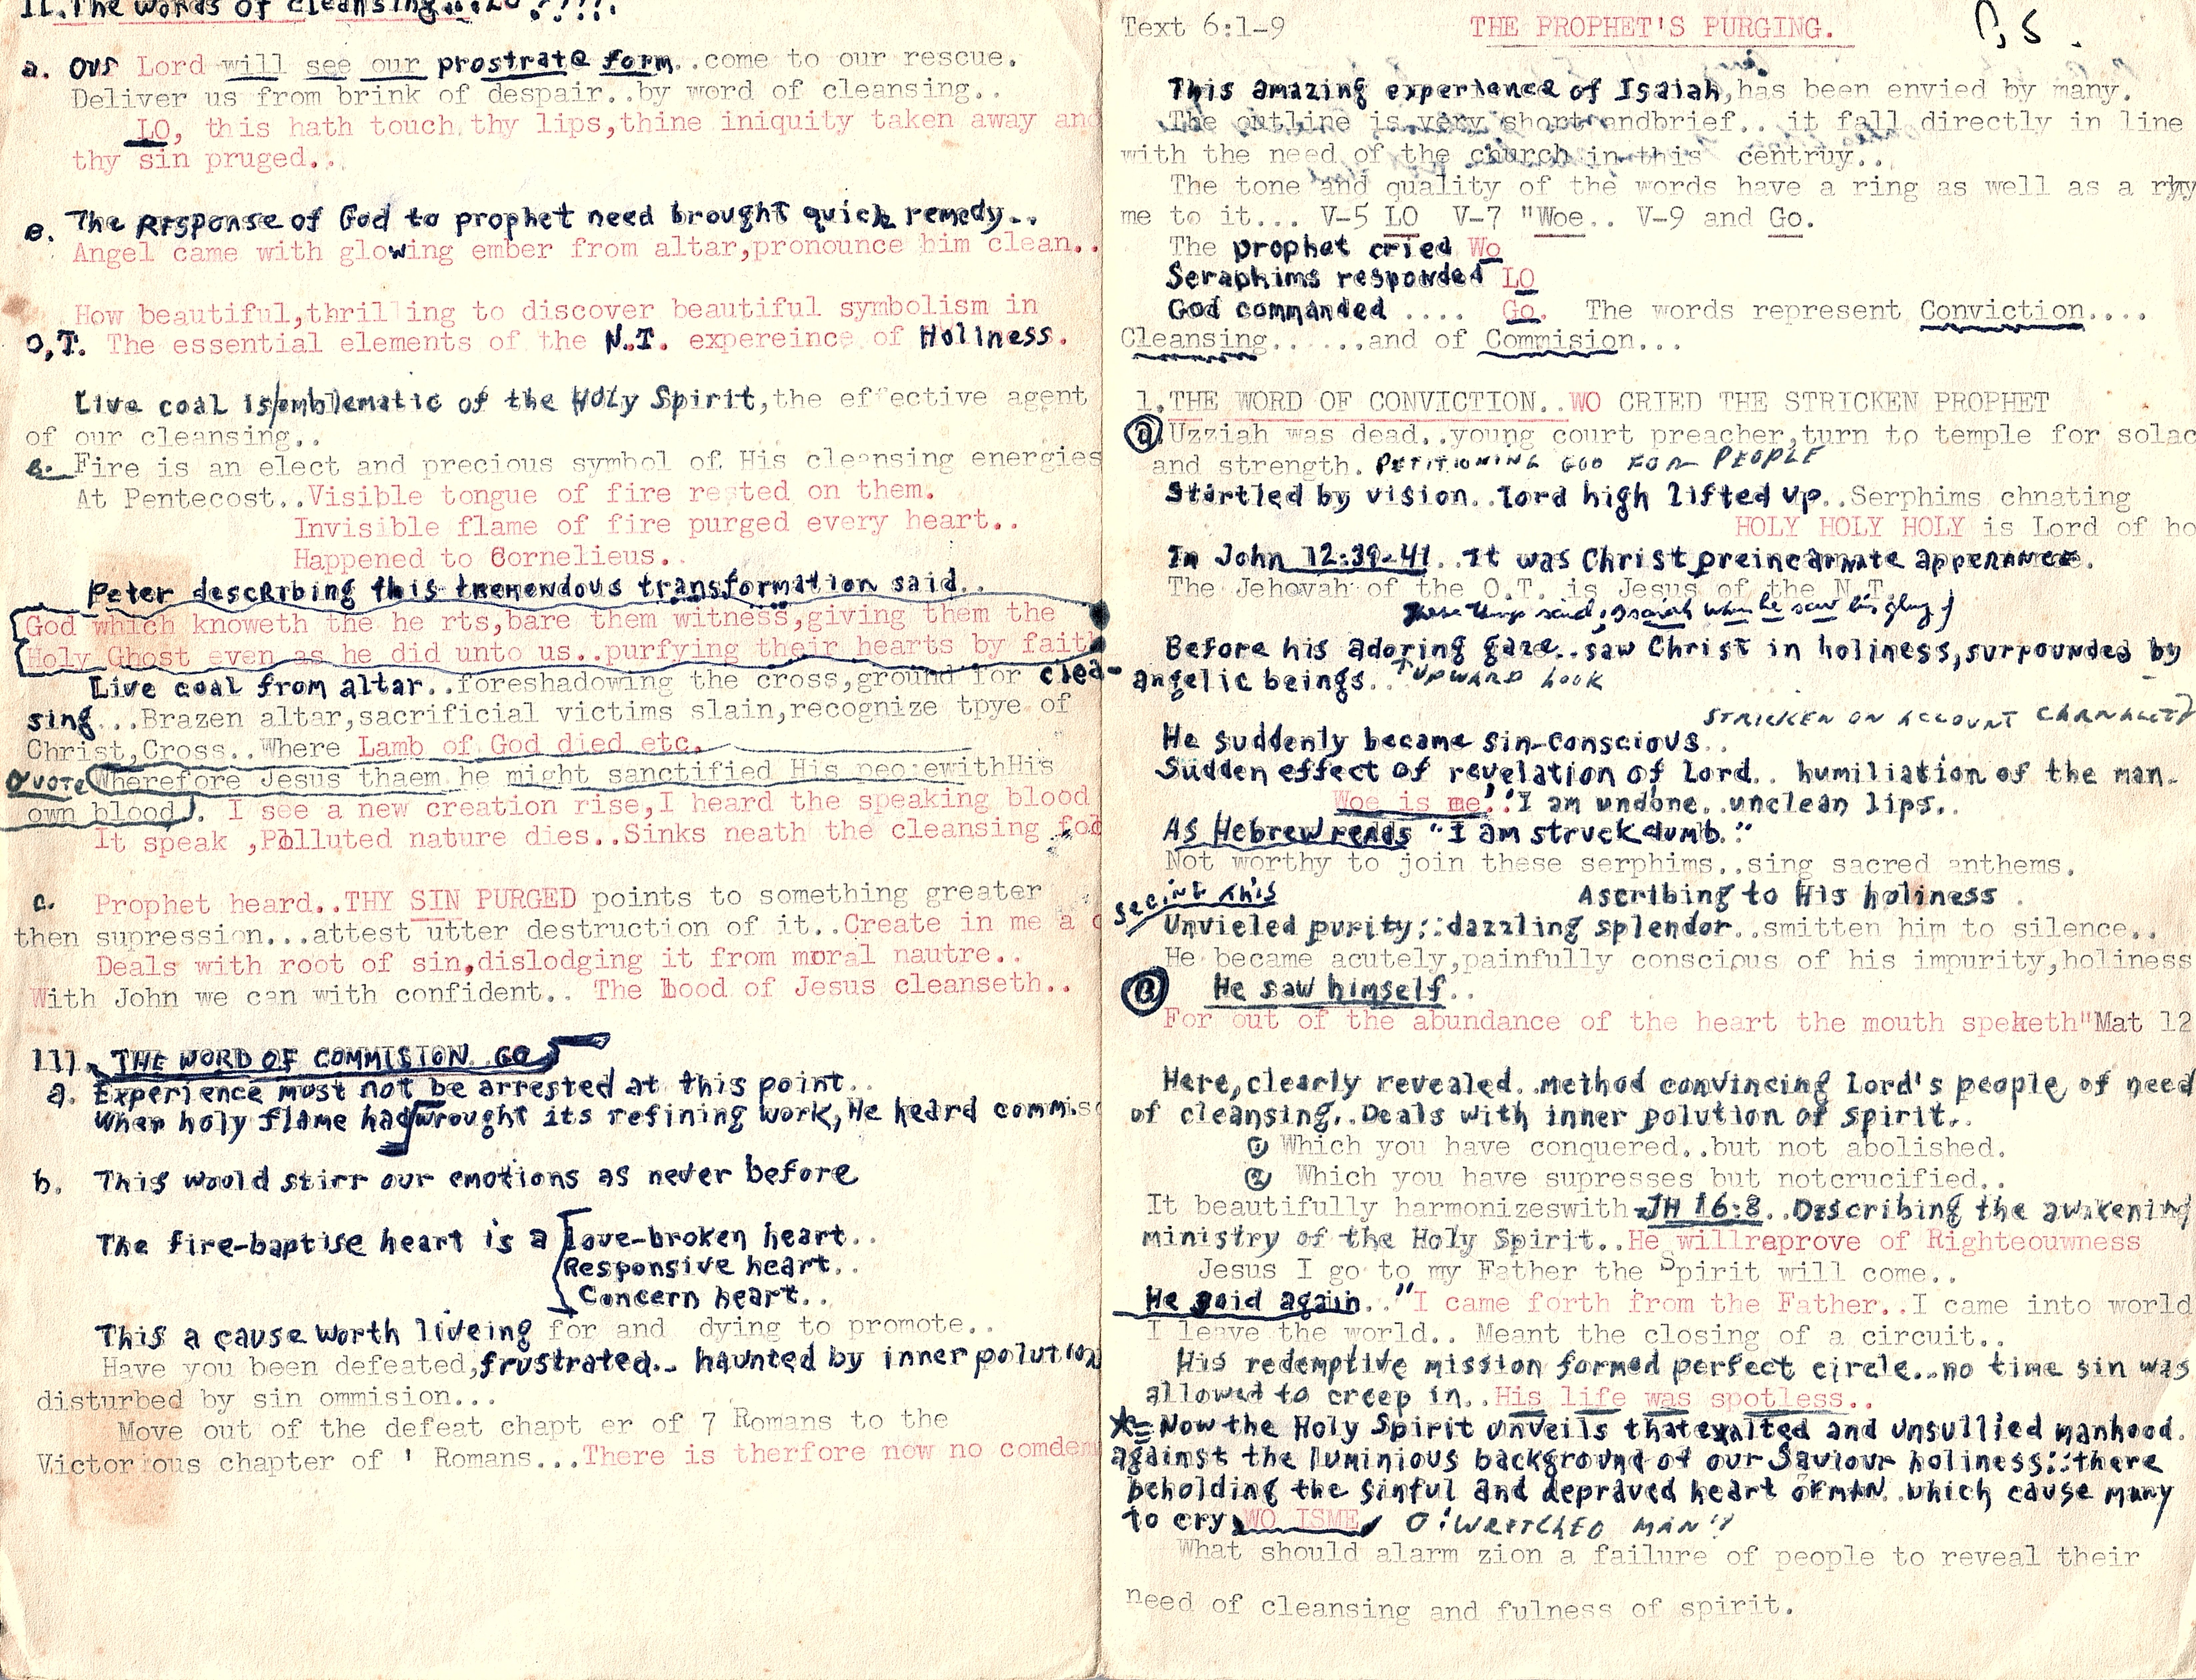 Text 6:1-9 THE PROPHET'S PURGING. P, S.
This amazing experience of Isaiah,has been envied by many.
The outline is very short andbrief.. it fall directly in line
with the need of the church in this centruy..
The tone and quality of the words have a ring as well as a rhy
me to it... V-5 LO V-7 "Woe.. V-9 and Go.
The prophet cried Wo
Seraphims responded LO
God commanded .... Go. The words represent Conviction....
Cleansing......and of Commision...
1.THE WORD OF CONVICTION..WO CRIED THE STRICKEN PROPHET
a Uzziah was dead..young court preacher,turn to temple for solac
and strength. PETITIONING GOD FOR PEOPLE
Startled by vision..lord high lifted up..Serphims chnating
HOLY HOLY HOLY is Lord of ho
In John 12:39-41..It was Christ preincarnate apperance.
The Jehovah of the O.T. is Jesus of the N.T.
These things said Isaiah when he saw his glory
Before his adoring gaze..saw Christ in holiness,surrounded by
angelic beings.. UPWARD LOOK
STRICKEN ON ACCOUNT CARNALITY
He suddenly became sin-conscious..
Sudden effect of revelation of Lord.. humiliation of the man.
Woe is me.'I am undone..unclean lips..
As Hebrew reads "I am struck dumb."
Not worthy to join these serphims..sing sacred anthems.
Ascribing to His holiness.
Seeing this
Unvieled purity;:dazzling splendor..smitten him to silence..
He became acutely,painfully conscious of his impurity,holiness
B He saw himself..
For out of the abundance of the heart the mouth speketh"Mat 12
Here,clearly revealed..method convincing Lord's people of need
of cleansing..Deals with inner polution of spirit..
1 Which you have conquered..but not abolished.
2 Which you have supresses but notcrucified..
It beautifully harmonizeswith JH 16:8..Describing the awakening
ministry of the Holy Spirit..He willreprove of Righteouwness
Jesus I go to my Father the Spirit will come..
He said again.."I came forth from the Father..I came into world
I leave the world.. Meant the closing of a circuit..
His redemptive mission formed perfect circle..no time sin was
allowed to creep in..His life was spotless..
Now the Holy Spirit unveils thatexalted and unsullied manhood.
against the luminious background of our Saviour holiness;:there
beholding the sinful and depraved heart of man..which cause many
to cry WO ISME O! WRETCHED MAN"
What should alarm zion a failure of people to reveal their
need of cleansing and fulness of spirit.
II.The words of cleansing...LO !!!!.
a. our Lord will see our prostrate form..come to our rescue.
Deliver us from brink of despair..by word of cleansing..
LO, this hath touch thy lips,thine iniquity taken away and
thy sin pruged..
e. The Response of God to prophet need brought quick remedy..
Angel came with glowing ember from altar,pronounce him clean..
How beautiful,thrilling to discover beautiful symbolism in
O,T. The essential elements of the N.T. expereince of Holiness.
Live coal is/emblematic of the Holy Spirit,the effective agent
of our cleansing..
Fire is an elect and precious symbol of His cleansing energies
At Pentecost..Visible tongue of fire rested on them.
Invisible flame of fire purged every heart..
Happened to Cornelieus.
Peter describing this tremendous transformation said..
God which knoweth the he rts,bare them witness,giving them the
Holy Ghost even as he did unto us..purfying their hearts by faith
Live coal from altar..foreshadowing the cross,ground for clea-
sing...Brazen altar,sacrificial victims slain,recognize tpye of
Christ,Cross..Where Lamb of God died etc.
QUOTE Wherefore Jesus thaem he might sanctified His peo ewithHis
own blood). I see a new creation rise,I heard the speaking blood
It speak ,Polluted nature dies..Sinks neath the cleansing
c. Prophet heard..THY SIN PURGED points to something greater
then supression...attest utter destruction of it..Create in me a c
Deals with root of sin,dislodging it from moral nautre..
With John we can with confident.. The bood of Jesus cleanseth..
111. THE WORD OF COMMISION GO
a. Experience must not be arrested at this point..
When holy flame had wrought its refining work,He heard commiso
b. This would stirr our emotions as never before
The fire-baptise heart is a love-broken heart..
Responsive heart..
Concern heart..
This a cause worth liveing for and dying to promote..
Have you been defeated,frustrated.. haunted by inner polution
disturbed by sin ommision...
Move out of the defeat chapt er of 7 Romans to the
Victorious chapter of ' Romans...There is therfore now no comdem